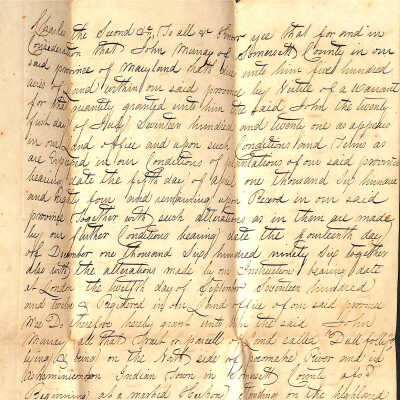 Charles the Second &c. To all &c Know yee that for and in
Consideration that John Murray of Somersett County in our
said province of Maryland hath due unto him five hundred
acres of Land within our said province by Virtue of a Warrant
for the quantity granted unto him the said John the twenty
first day of July Seventeen hundred and twenty one as appears
in our Land office and upon such Conditions and Terms as
are Expressed in our Conditions of plantations of our said province
bearing date the fifth day of April one thousand Six hundred
and Eighty four and remaining upon Record in our said
province together with such alterations as in them are made
by our further Conditions bearing date the fourteenth day
of December one thousand Six hundred ninety Six together
also with the alterations made by our Instructions bearing date
at London the twelfth day of September Seventeen hundred
and twelve & Registered in our Land office of our said province
Wee Do therefore hereby grant unto him the said John
Murray all that Tract or parcell of Land called
lying & being on the North side of pocomoke River and in
Indian Town in Somersett County afsd
Beginning at a marked standing on the